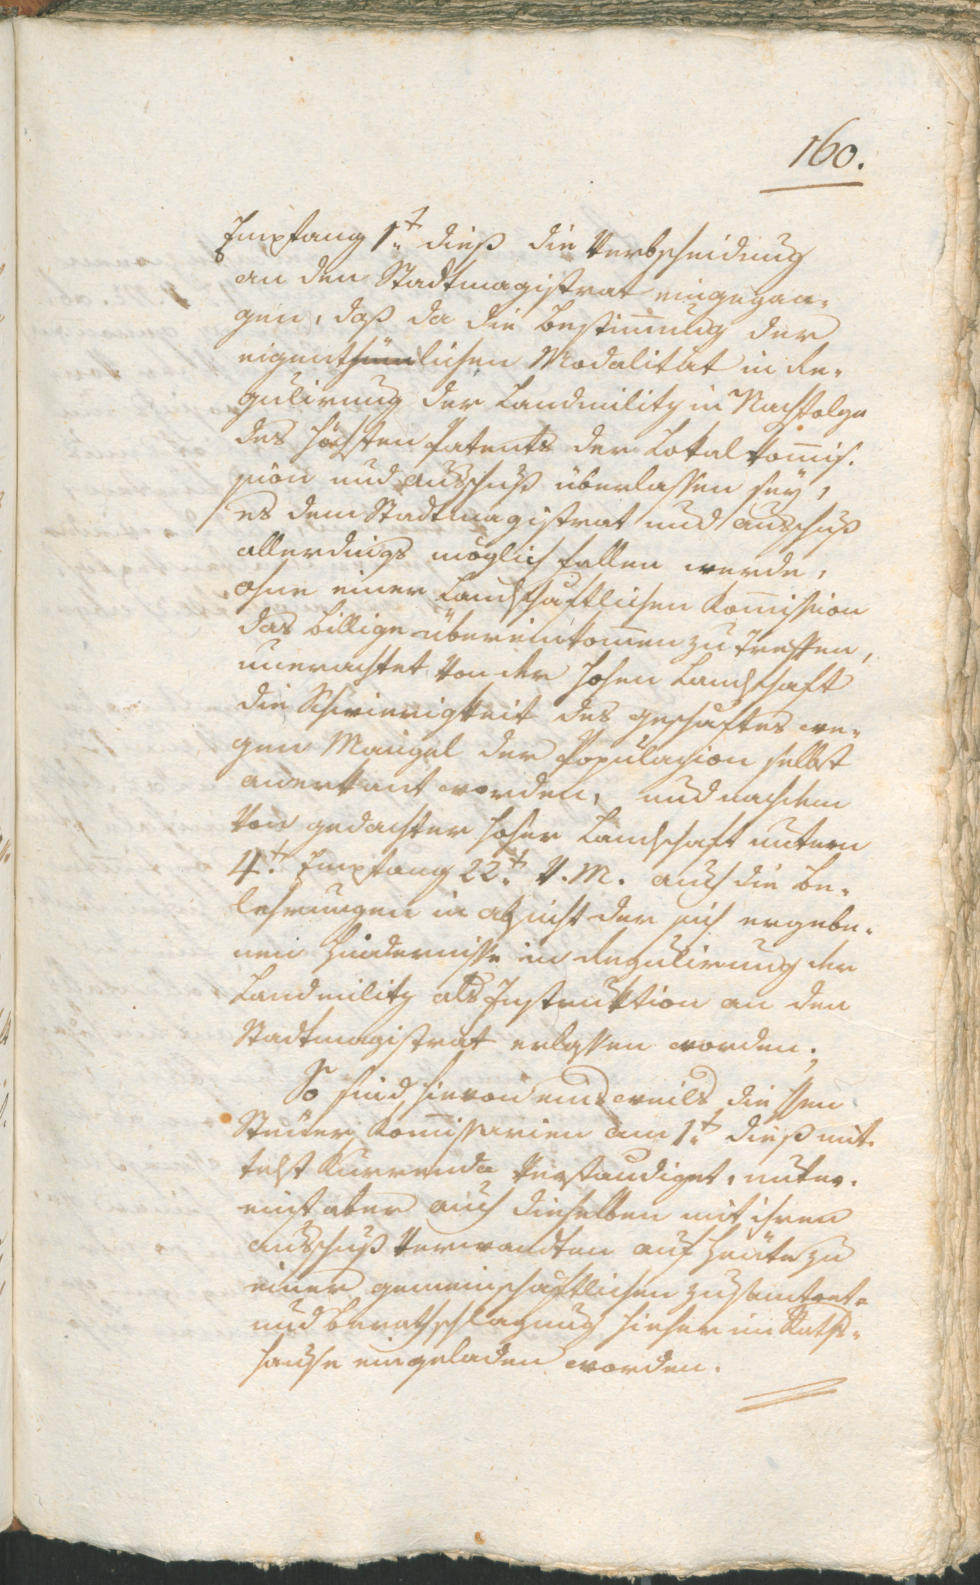 160.
Empfang 1t: dieß die Verbscheidung
an den Stadtmagistrat eingegan-
gen, daß da die Bestim̅ung der
eigenthümlichen Modalität in Re-
gulirung der Landmilitz in Nachfolge
des höchsten Patents der Lokalkom̅is-
sion und Ausschuß überlassen sey,
es dem Stadtmagistrat und Ausschuß
allerdings möglich fallen werde,
ohne einer Landschaftlichen Kom̅ission
das billige übereinkom̅en zu treffen,
unerachtet von der hohen Landschaft
die Schwierigkeit des geschäftes we-
gen Mangel der Populazion selbst
anerkannt worden, und nachdem
von gedachter hoher Landschaft unterm
4t: Empfang 22t: V. M. auch die Be-
lehrungen in absicht der sich ergebe-
nen Hindernisse in Regulirung der
Landmilitz als Instruktion an den
Stadtmagistrat erlassen worden;
So sind hievon einsweils die Hen
Steuer Kom̅issarien am 1t: dieß mit-
telst Kurrenda verständiget, unter-
einst aber auch dieselben mit ihren
Ausschuß Verwandten auf Heute zu
einer gemeinschaftlichen zusamtret-
und berathschlagung hieher im Rath-
hause eingeladen worden.